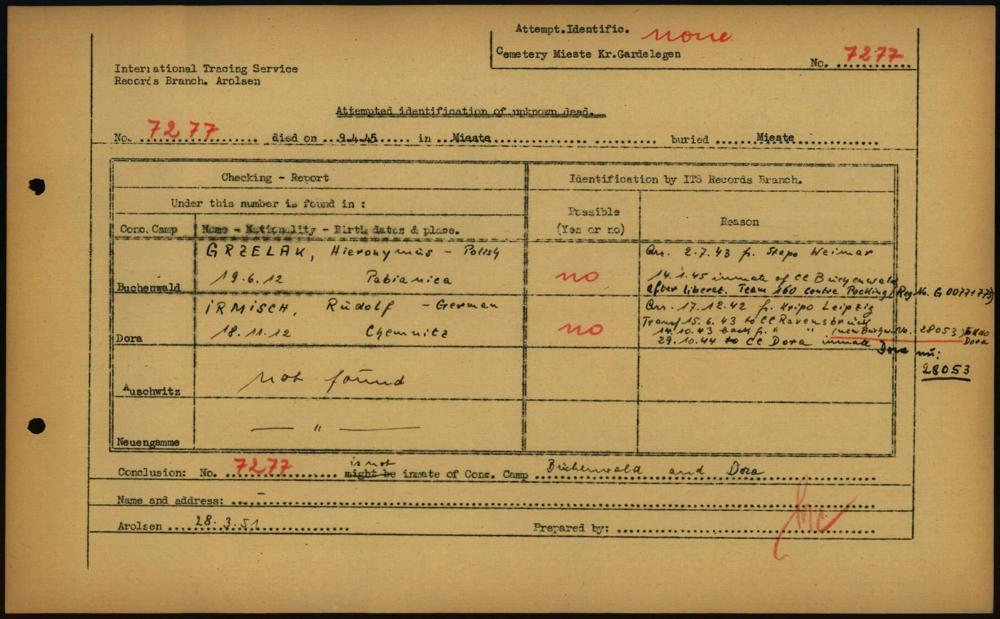 Attempt.Identific. none
Cemetery Mieste Kr.Gardelegen
No. 7277
International Tracing Service
Records Branch. Arolsen
Attempted identification of unknown dead.
No. 7277 died on 9.4.45 in Mieste buried Mieste
Checking - Report
Identification by ITS Records Branch.
Under this number is found in :
Possible
(Yes or no)
Reason
Conc. Camp
Name - Nationality - Birth dates & place.
GRZELAK, Hieronymus - Polish
Arr. 2.7.43 fr. Stapo Weimar
Buchenwald
19.6.12 Pabianica
no
14.1.45 inmate of CC Buchenwald
after liberat. Team 160 centre Pocking (Reg. No. G
IRMISCH, Rudolf - German
Arr. 17.12.42 fr. Kripo Leipzig
Dora
18.11.12 Chemnitz
no
Transf 15.6.43 to CC Ravensbrück
14.10.43 back fr. " (new Buchw. No.: 28053)
29.10.44 to CC Dora inmate Dora nu:
Dora
28053
Auschwitz
not found
Neuengamme
— " —
Conclusion: No. 7277 is not might be inmate of Conc. Camp Buchenwald and Dora
Name and address: -
Arolsen 28.3.51 Prepared by: